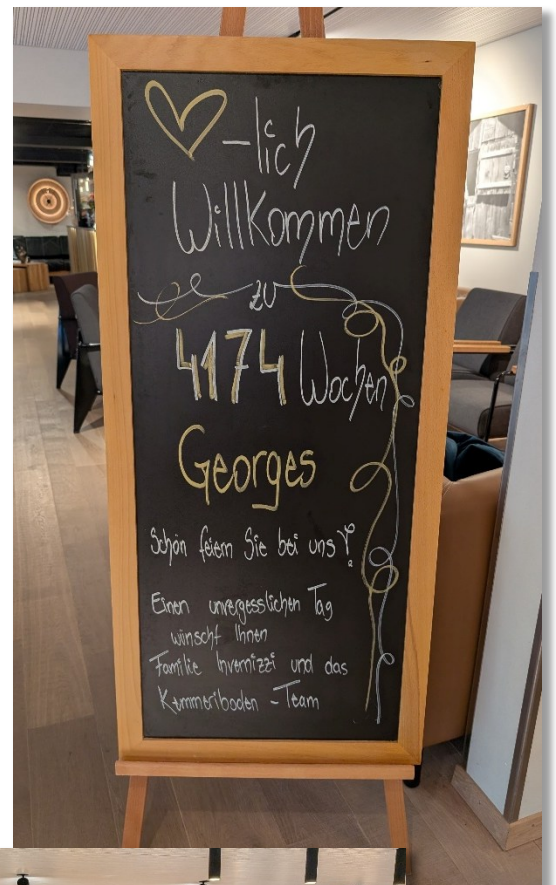 ♥-lich
Willkommen
zu
4174 Wochen
Georges
Schön feiern Sie bei uns!
Einen unvergesslichen Tag
wünscht Ihnen
Familie Invernizzi und das
Kemmeriboden - Team